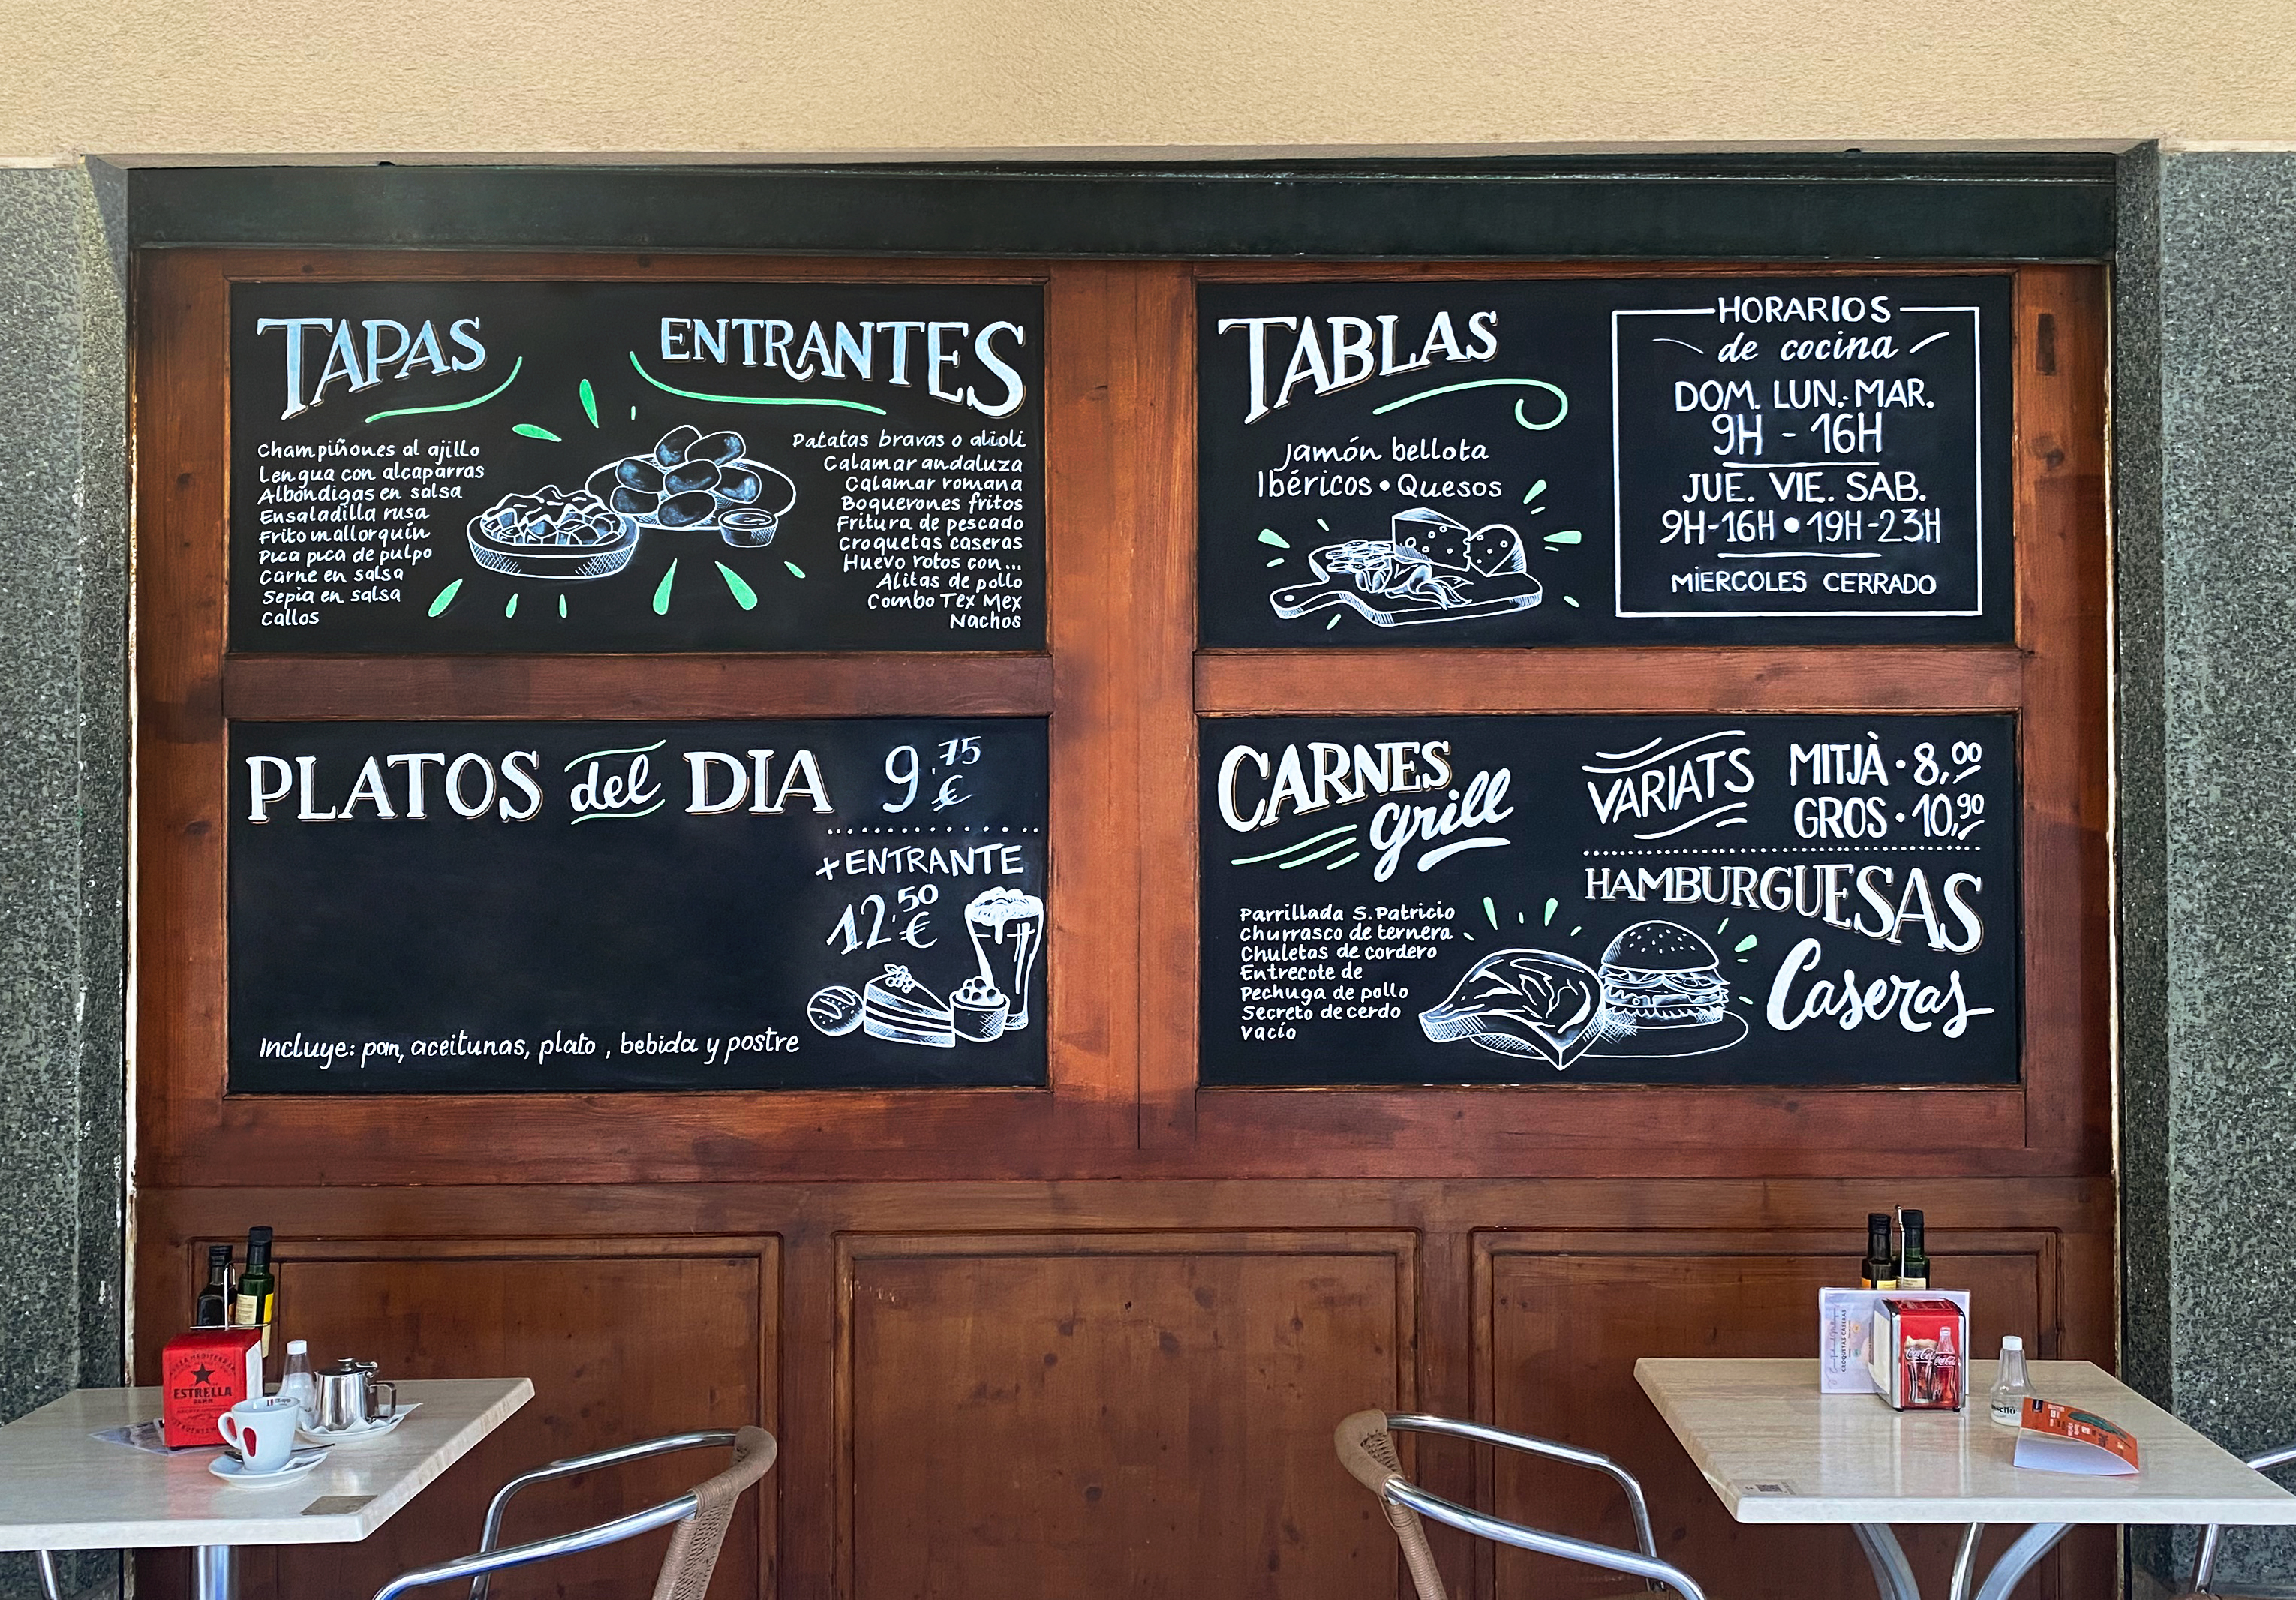 TAPAS
Champiñones al ajillo
Lengua con alcaparras
Albóndigas en salsa
Ensaladilla rusa
Frito mallorquín
Pica pica de pulpo
Carne en salsa
Sepia en salsa
Callos
ENTRANTES
Patatas bravas o alioli
Calamar andaluza
Calamar romana
Boquerones fritos
Fritura de pescado
Croquetas caseras
Huevo rotos con...
Alitas de pollo
Combo Tex Mex
Nachos
TABLAS
Jamón bellota
Ibéricos • Quesos
HORARIOS
de cocina
DOM. LUN. MAR.
9H - 16H
JUE. VIE. SAB.
9H-16H • 19H-23H
MIERCOLES CERRADO
PLATOS del DIA 9,75 €
+ ENTRANTE
12,50 €
Incluye: pan, aceitunas, plato , bebida y postre
CARNES
grill
Parrillada S. Patricio
Churrasco de ternera
Chuletas de cordero
Entrecote de
Pechuga de pollo
Secreto de cerdo
Vacío
VARIATS
MITJÀ • 8,00
GROS • 10,90
HAMBURGUESAS
Caseras
ESTRELLA
DAMM
CROQUETAS CASERAS
Coca-Cola